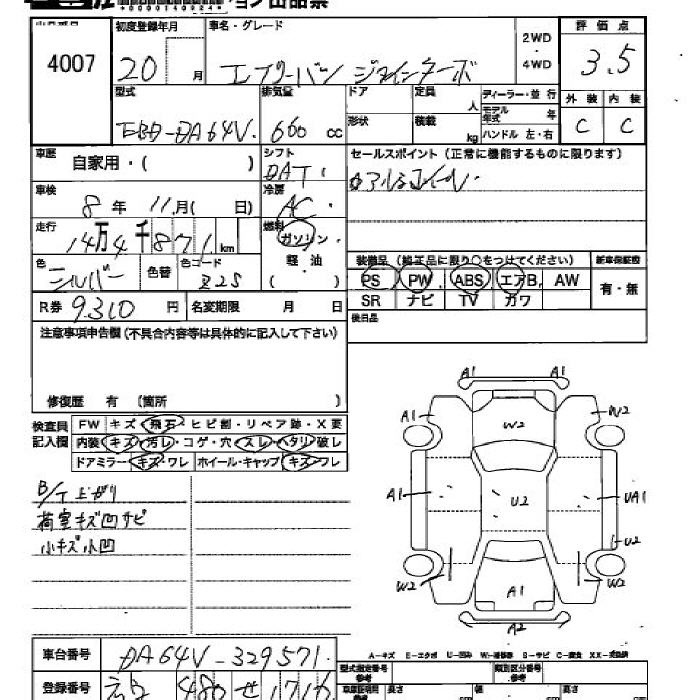 4007
初度登録年月
20 月
車名・グレード
エブリーバン ジョインターボ
2WD
・
4WD
評 価 点
3.5
外 装 内 装
C C
型式
EBD-DA64V.
排気量
660 cc
ドア
形状
定員 人
積載 kg
ディーラー・並 行
モデル年式 年
ハンドル 左・右
車歴 自家用・( )
シフト
DAT
セールスポイント (正常に機能するものに限ります)
車検 8 年 11 月 ( 日)
冷房
AC
走行 14 万 4 千 8 7 1 km
燃料
ガソリン・
軽 油・
( )
色 シルバー 色替 色コード Z2S
装備品 (純正品に限り○をつけてください)
新車保証書
PS PW ABS エアB. AW
SR ナビ TV カワ
有・無
R券 9310 円 名変期限 月 日
後日品
注意事項申告欄 (不具合内容等は具体的に記入して下さい)
修復歴 有 (箇所 )
検査員記入欄
FW キズ・飛石・ヒビ割・リペア跡・X要
内装 キズ・汚レ・コゲ・穴・スレ・ヘタリ・破レ
ドアミラー・キズ・ワレ ホイール・キャップ・キズ・ワレ
B/T上ガリ
荷室キズ凹サビ
小キズ小凹
A1 A1
A1 W2 W2
A1 U2 UA1
U2
W2 A1 W2
A2
A-キズ E-エクボ U-凹み W-補修跡 S-サビ C-腐食 XX-交換済
車台番号 DA64V-329571
登録番号 480 せ 1716
型式指定番号 類別区分番号
長さ cm 幅 cm 高さ cm